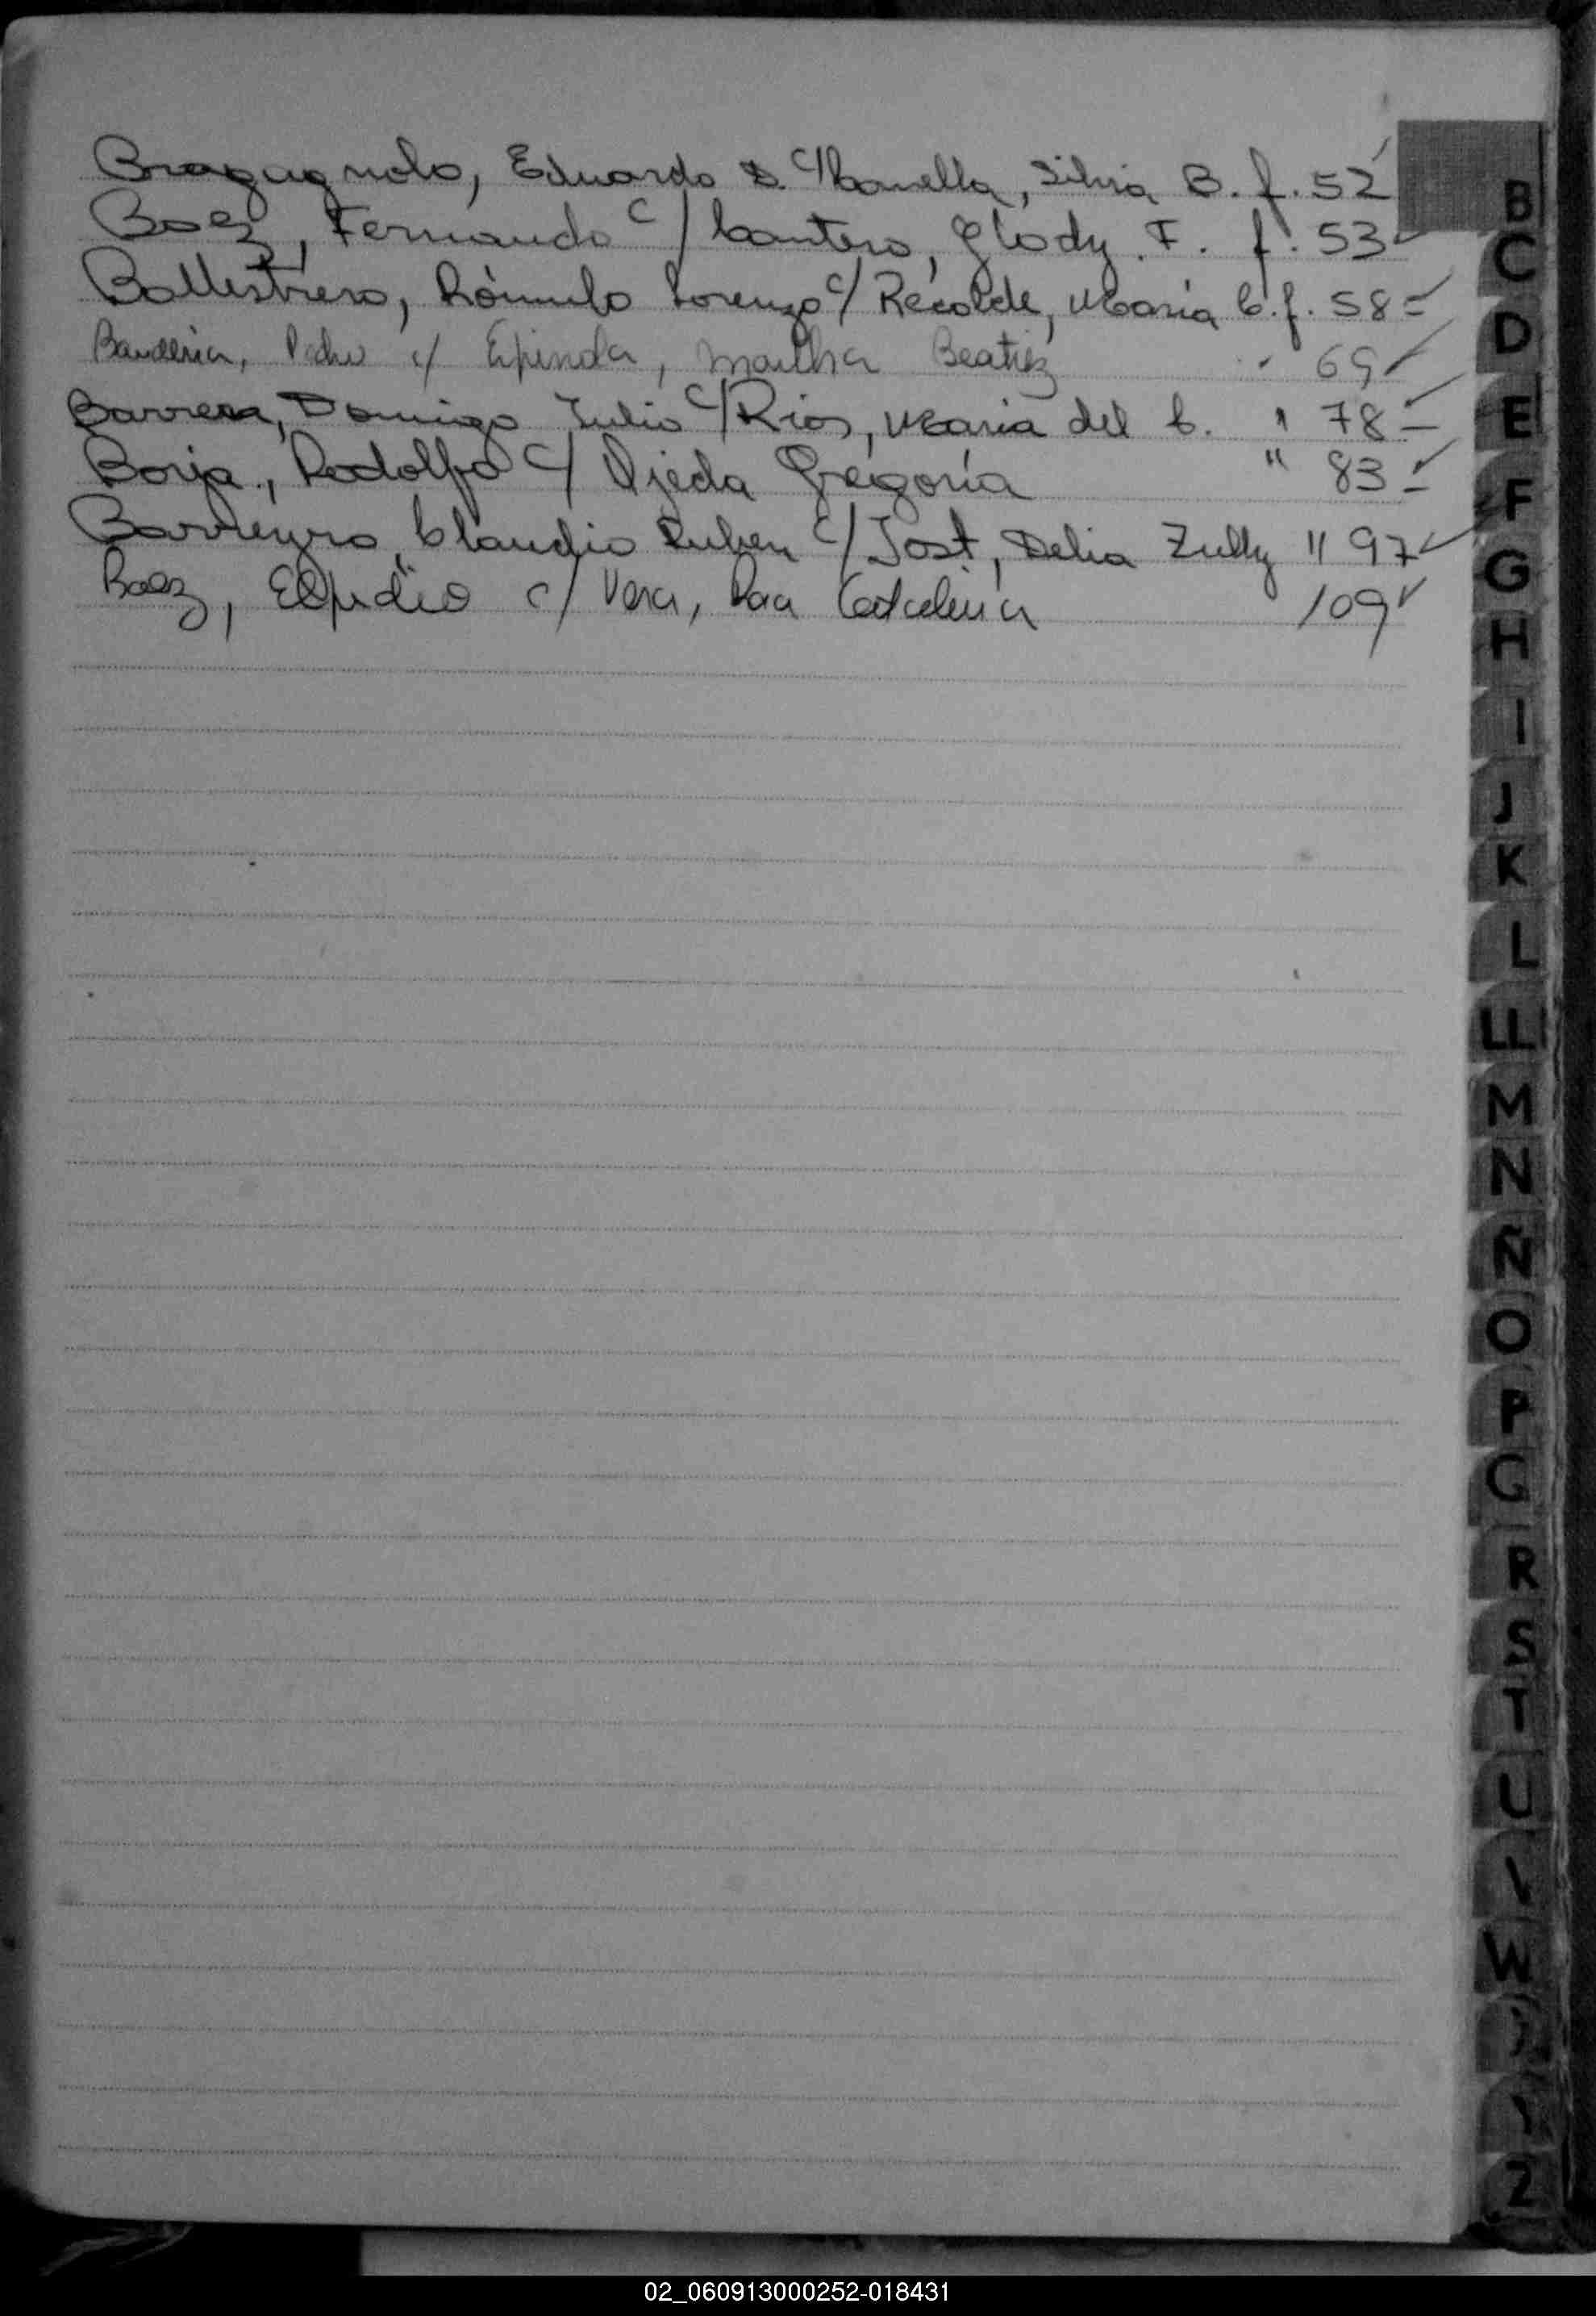 Bragagnolo, Eduardo D. c/ Silvia B. f. 52
Baez, Fernando c/ Cantero, Glody F. f. 53
Ballestrero, Rómulo Lorenzo c/ Recalde, María C. f. 58
Pedro c/ Espindola, Martha Beatriz " 69
Barrera, Domingo Julio c/ Rios, María del C. " 78
Borja, Rodolfo c/ Ojeda Gregoria " 83
Barrieyro, Claudio Ruben c/ Jost, Delia Zully " 97
Baez, Elpidio c/ Vera, Catalina 109
B
C
D
E
F
G
H
I
J
K
L
LL
M
N
Ñ
O
P
R
S
T
U
W
Z
02_060913000252-018431